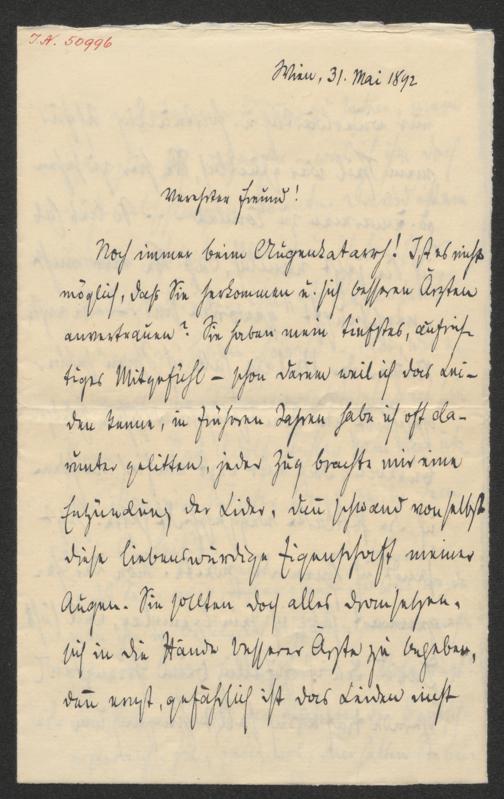 I.N. 50996
Wien, 31. Mai 1892
Verehrter Freund!
Noch immer beim Augenkatarrh! Ist es nicht
möglich, daß Sie herkommen u. sich besseren Ärzten
anvertrauen? Sie haben mein tiefstes, aufrich-
tiges Mitgefühl – schon darum weil ich das Lei-
den kenne, in früheren Jahren habe ich oft da-
runter gelitten, jeder Zug brachte mir eine
Entzündung der Lider, dann schwand von selbst
diese liebenswürdige Eigenschaft meiner
Augen. Sie sollten doch alles dransetzen,
sich in die Hände besserer Ärzte zu begeben,
denn ernst, gefährlich ist das Leiden nicht